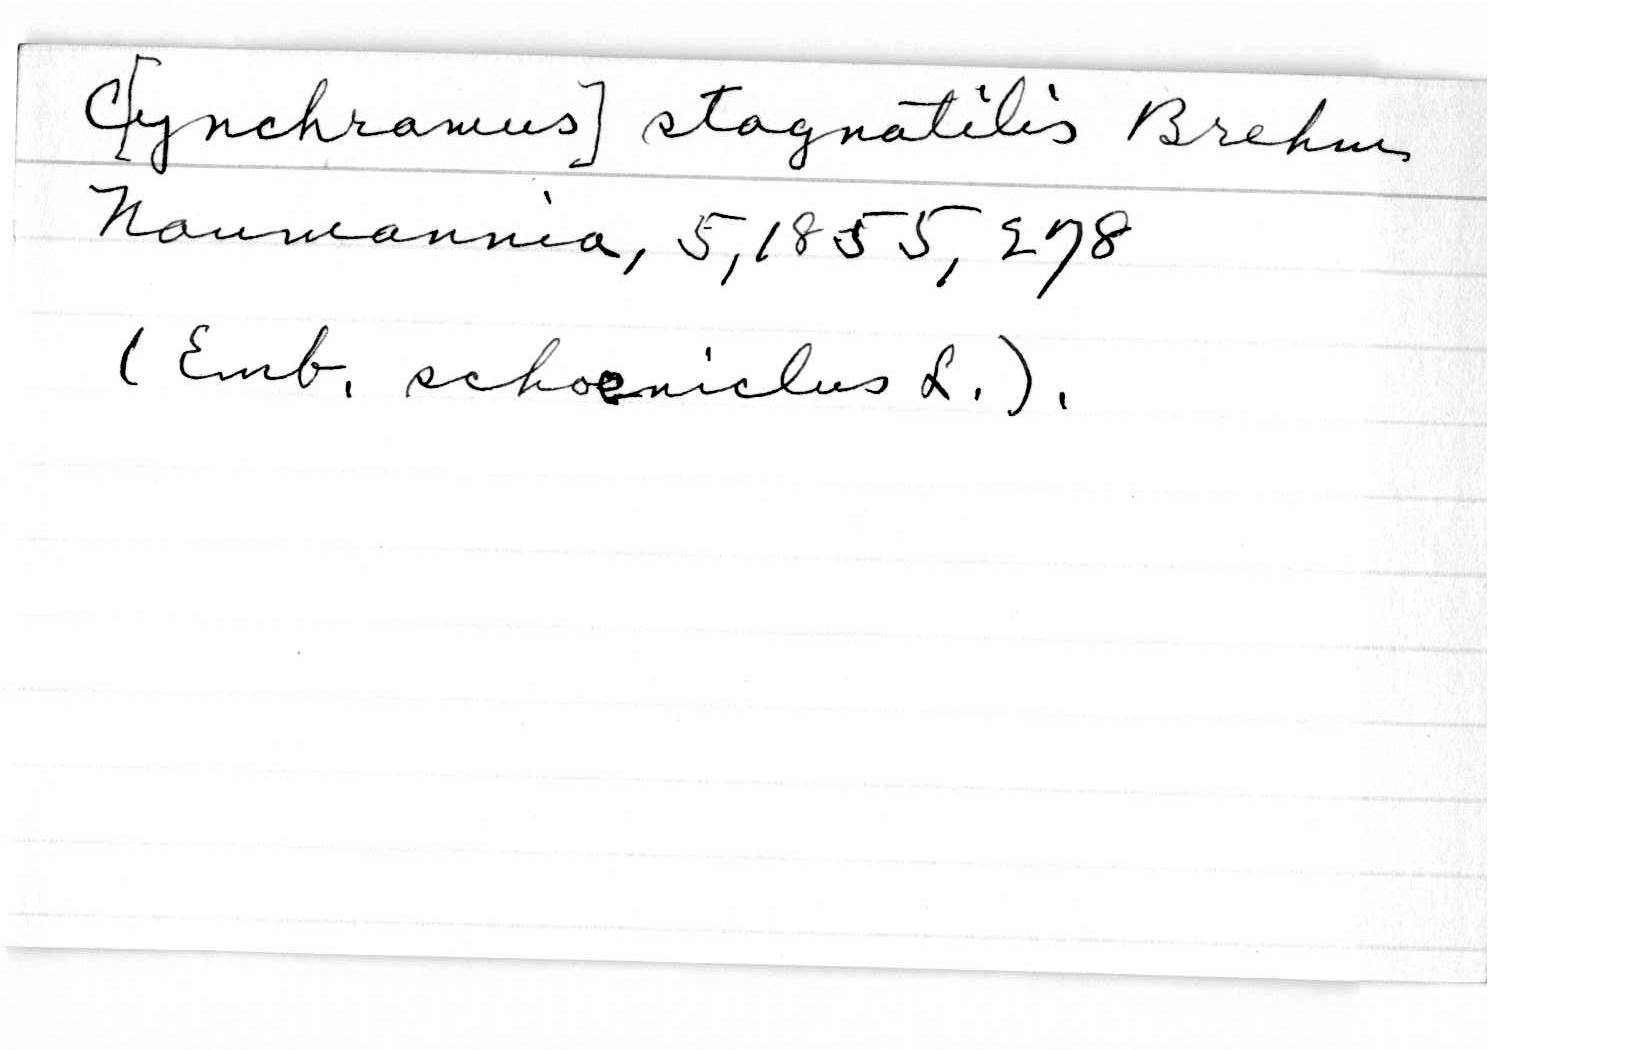 C[ynchramus] stagnatilis Brehm
Naumannia, 5, 1855, 278
(Emb. schoeniclus L.).